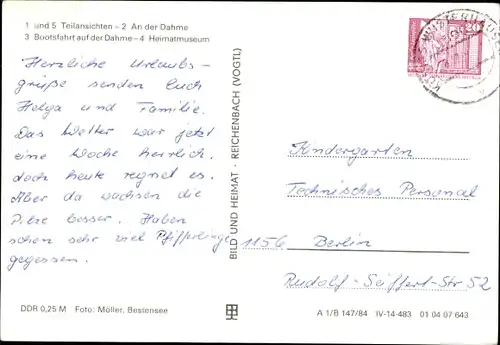 1 und 5 Teilansichten – 2 An der Dahme
3 Bootsfahrt auf der Dahme – 4 Heimatmuseum
Herzliche Urlaubs-
grüße senden Euch
Helga und Familie.
Das Wetter war jetzt
eine Woche herrlich,
doch heute regnet es.
Aber da wachsen die
Pilze besser. Haben
schon sehr viel Pfifferlinge
gegessen.
DDR 0,25 M Foto: Möller, Bestensee
BILD UND HEIMAT · REICHENBACH (VOGTL)
20
Kindergarten
Technisches Personal
1156 Berlin
Rudolf-Seiffert-Str 52
A 1/B 147/84 IV-14-483 01 04 07 643